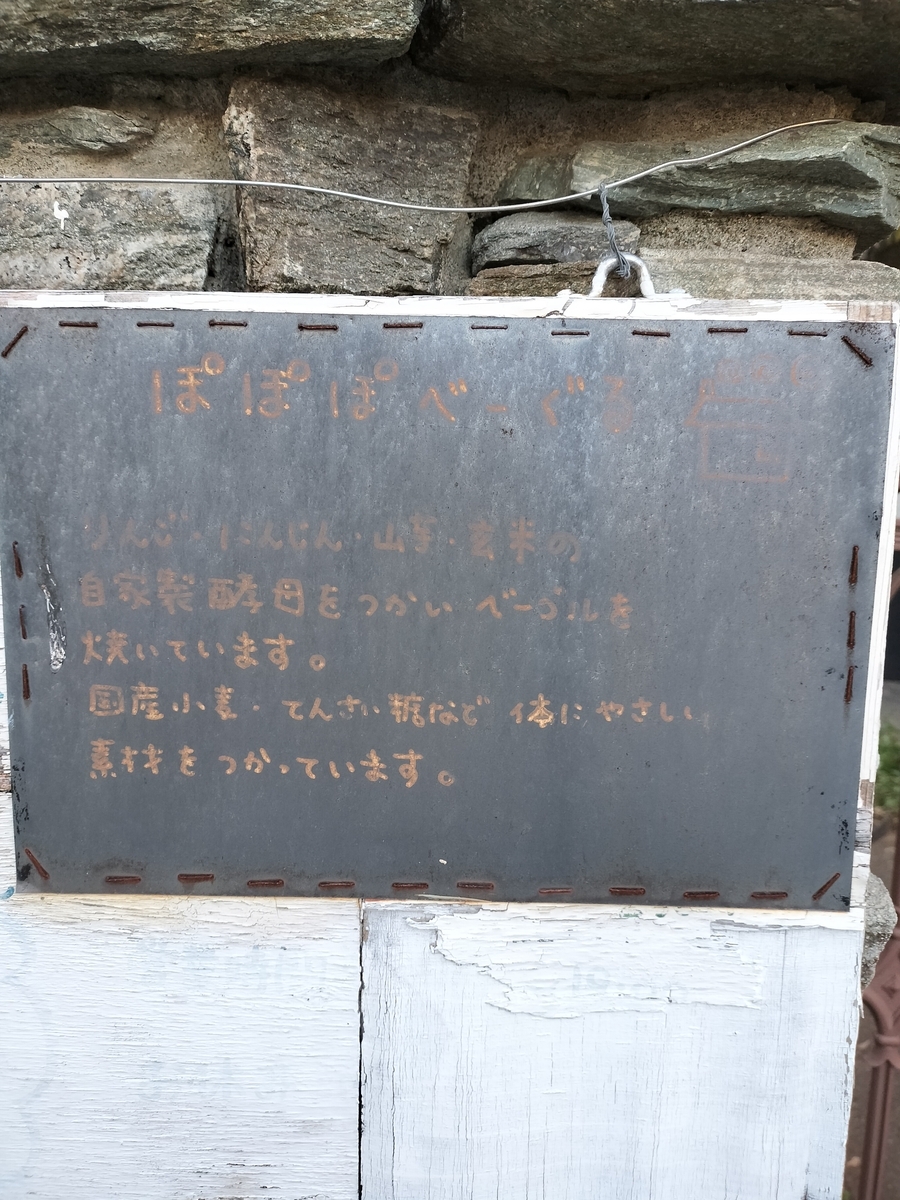 ぽぽぽべーぐる
りんご・にんじん・山芋・玄米の
自家製酵母をつかいベーグルを
焼いています。
国産小麦・てんさい糖など体にやさしい
素材をつかっています。